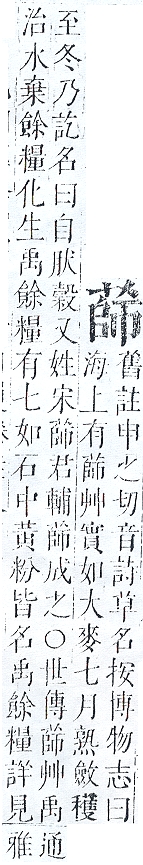 蒒
舊註申之切音詩草名按博物志曰
海上有蒒艸實如大麥七月熟斂穫
至冬乃訖名曰自肰穀又姓宋蒒君輔蒒成之〇世傳蒒艸禹
治水棄餘糧化生禹餘糧有七如石中黃粉皆名禹餘糧詳見
通
雅